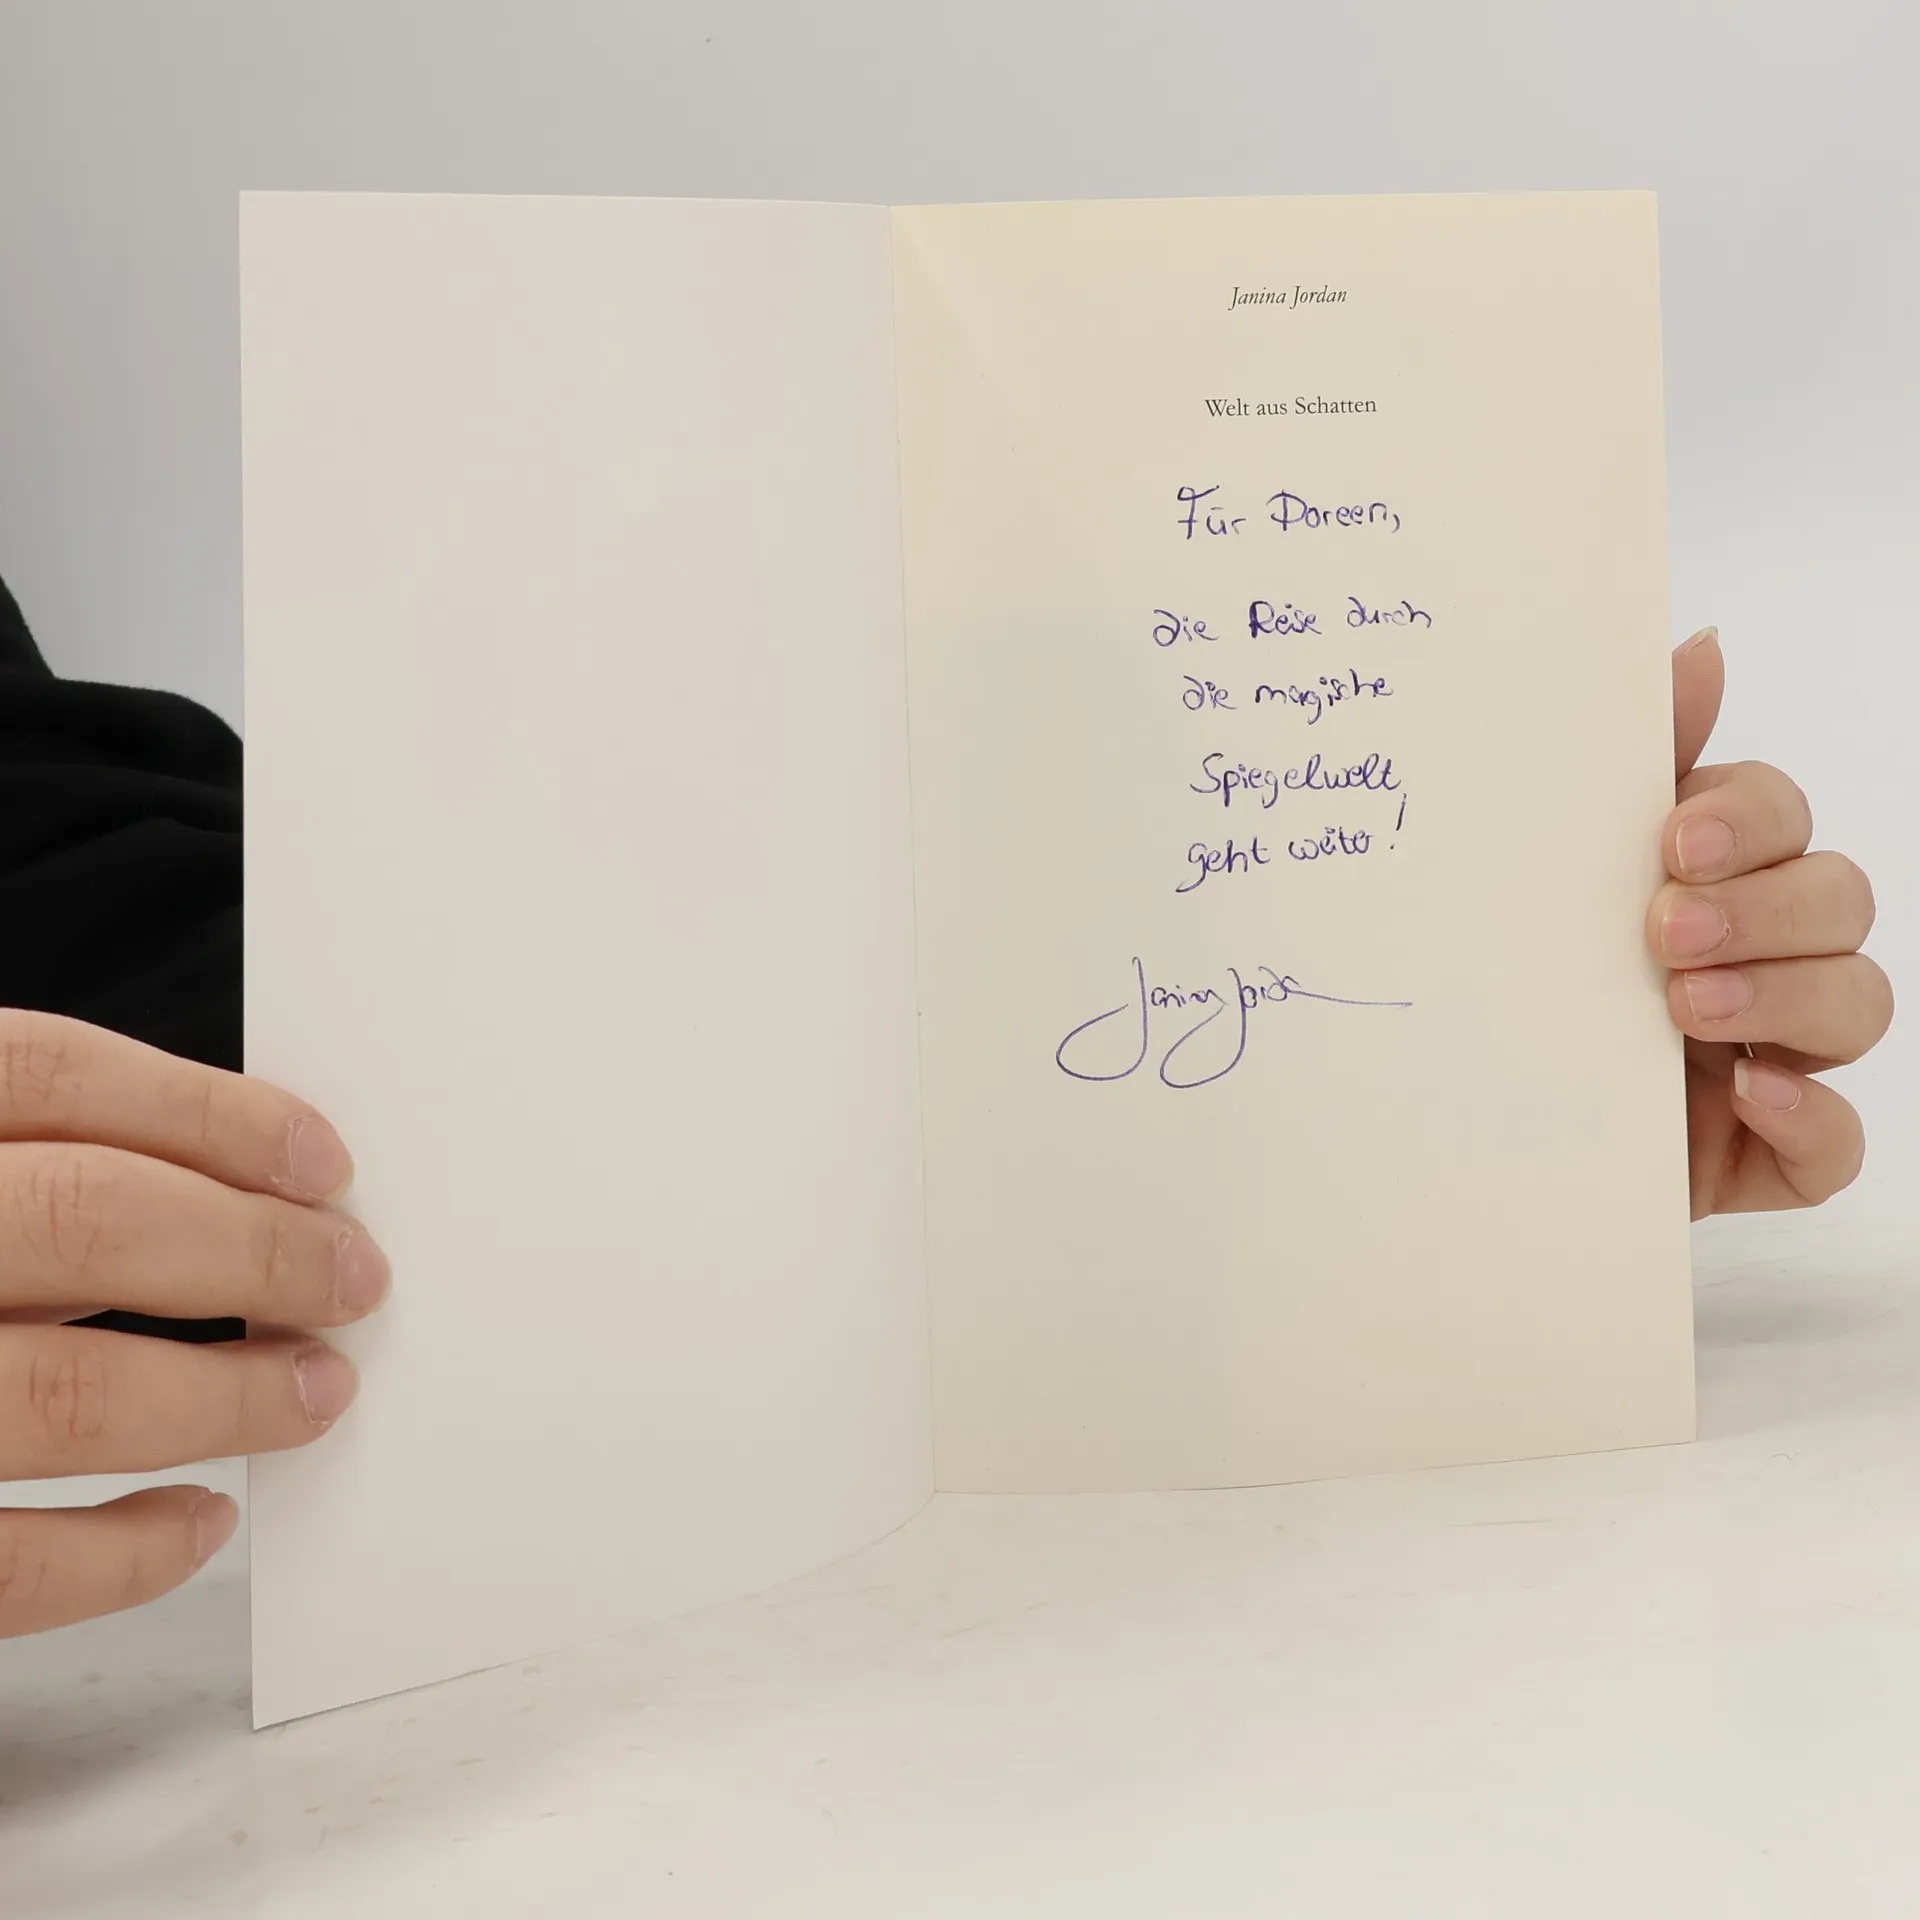 Janina Jordan
Welt aus Schatten
Für Doreen,
die Reise durch
die magische
Spiegelwelt
geht weiter!
Janina Jordan